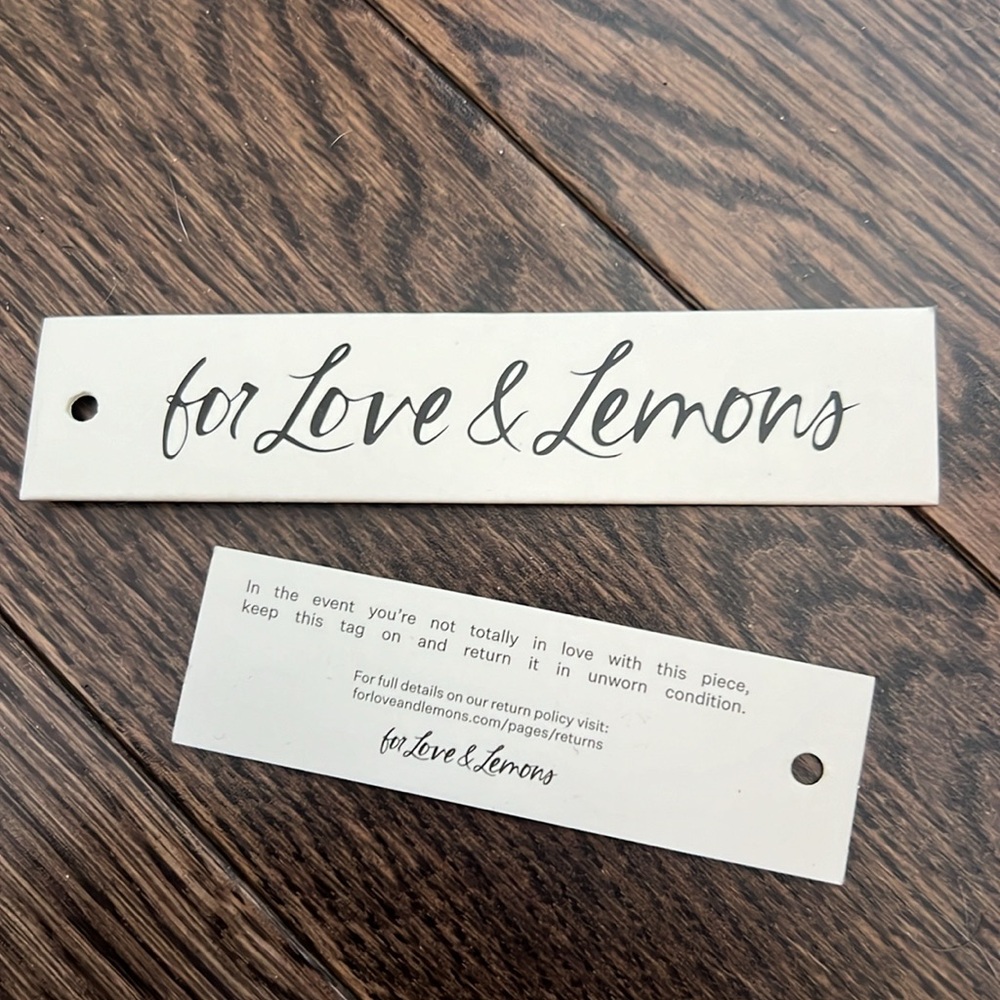 for Love & Lemons
In the event you're not totally in love with this piece,
keep this tag on and return it in unworn condition.
For full details on our return policy visit:
forloveandlemons.com/pages/returns
for Love & Lemons